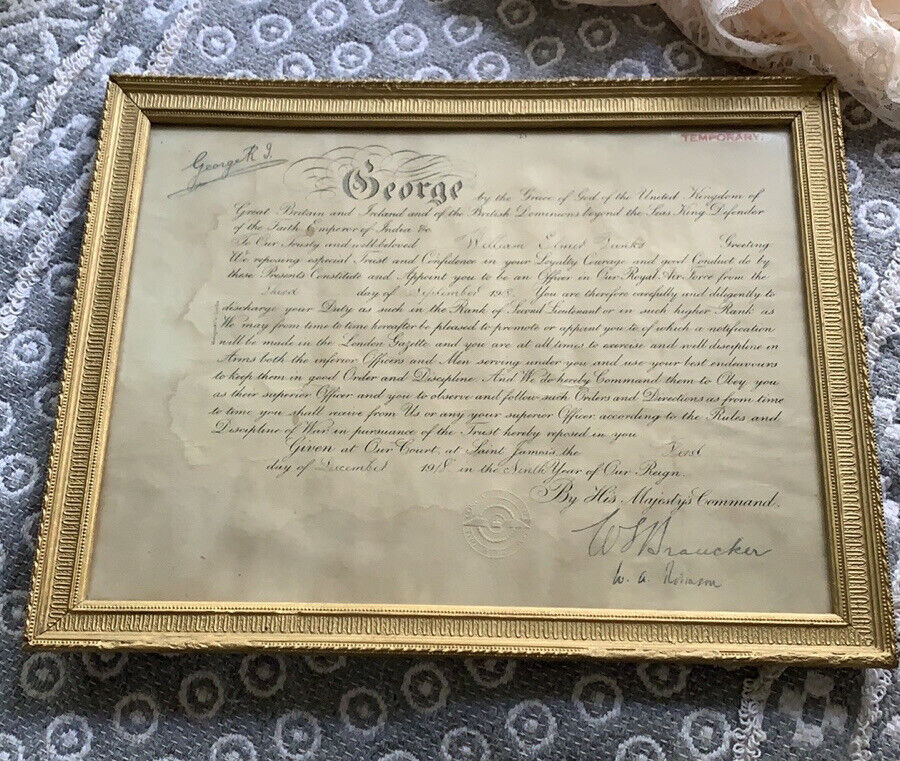 TEMPORARY.
George R. I.
George by the Grace of God of the United Kingdom of
Great Britain and Ireland and of the British Dominions beyond the Seas King Defender
of the Faith Emperor of India &c
To Our Trusty and well beloved William Ernest Greeting
We reposing especial Trust and Confidence in your Loyalty Courage and good Conduct do by
these Presents Constitute and Appoint you to be an Officer in Our Royal Air Force from the
Third day of September 1918. You are therefore carefully and diligently to
discharge your Duty as such in the Rank of Second Lieutenant or in such higher Rank as
We may from time to time hereafter be pleased to promote or appoint you to of which a notification
will be made in the London Gazette and you are at all times to exercise and well discipline in
Arms both the inferior Officers and Men serving under you and use your best endeavours
to keep them in good Order and Discipline. And We do hereby Command them to Obey you
as their superior Officer and you to observe and follow such Orders and Directions as from time
to time you shall receive from Us or any your superior Officer according to the Rules and
Discipline of War in pursuance of the Trust hereby reposed in you
Given at Our Court, at Saint James's, the First
day of December 1918 in the Ninth Year of Our Reign.
By His Majesty's Command.
W. A. Robinson